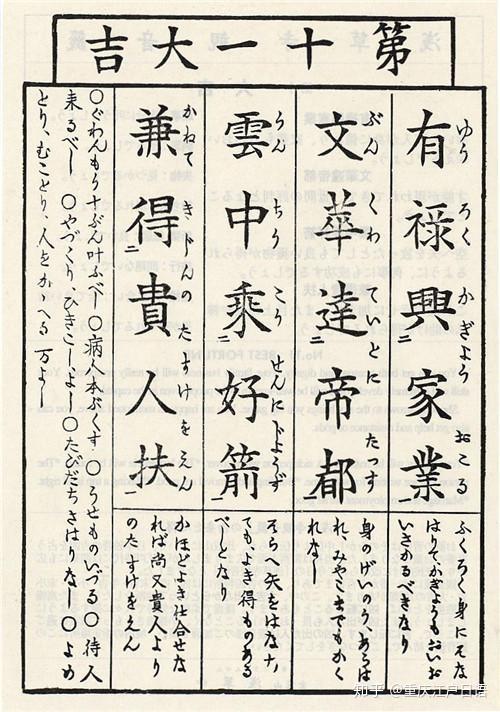 第十一大吉
有祿興二家業一
ゆう ろく かぎよう おこ
ふくろく身にそな
はりてかぎようもおいお
いさかるべきなり
文華達二帝都一
ぶん くわ ていとに たつす
身のげいのうあらは
れ、みやこまでもかく
れなし
雲中乘二好箭一
うん ちう こう せんにじようず
そらへ矢をはなち
てもよき得ものある
べしとなり
兼得二貴人扶一
かねて きじんの たすけを えん
かほどよき仕合せな
れば尚又貴人より
のたすけをえん
〇ぐわんもう十ぶん叶ふべし〇病人本ぶくす〇うせものいづる〇待人
来るべし〇やづくり、ひきこしよし〇たびだちさはりなし〇よめ
とり、むことり、人をかゝへる万よし
知乎 @重庆江户日语